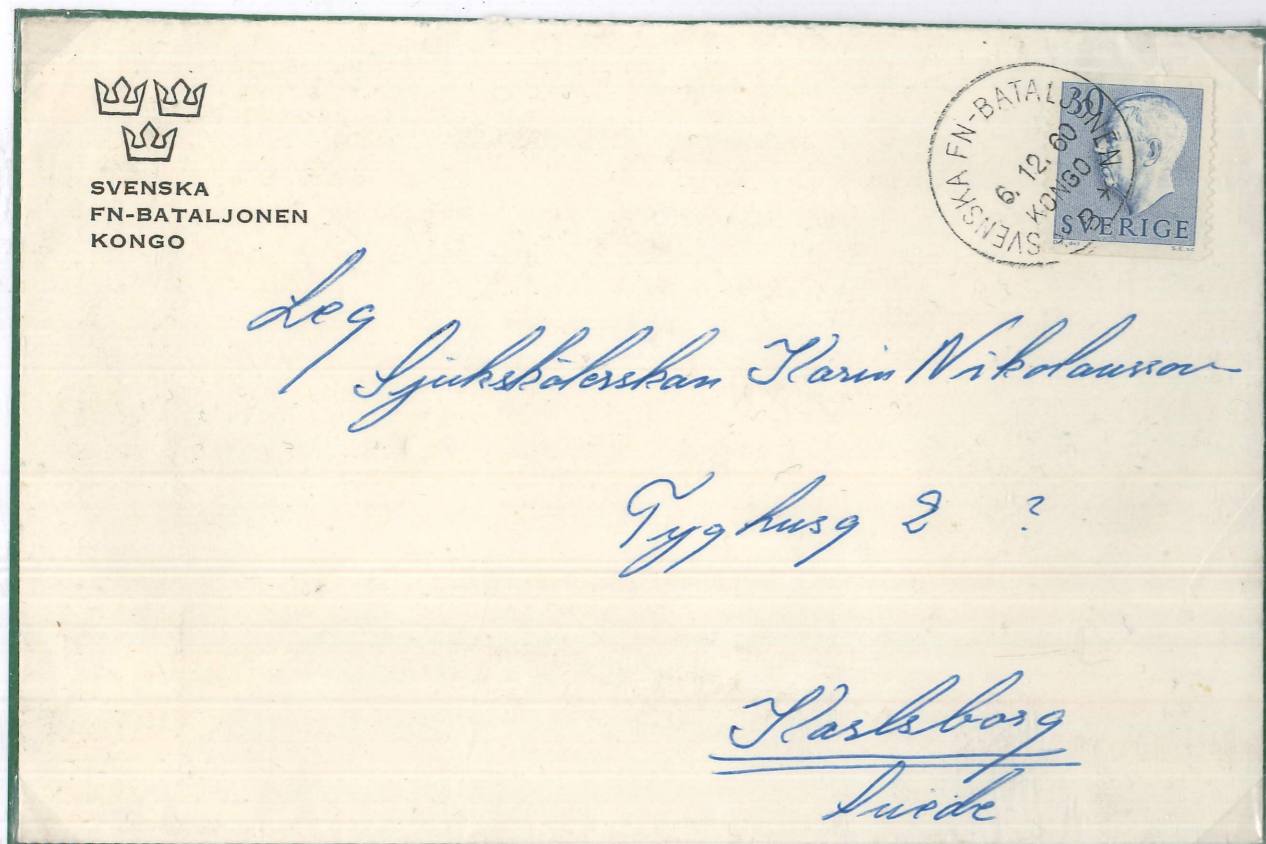 SVENSKA
FN-BATALJONEN
KONGO
SVENSKA FN-BATALJONEN
6. 12. 60
KONGO
* B
30
SVERIGE
Leg
Sjuksköterskan Karin Nikolausson
Tyghusg 2 ?
Karlsborg
Suède